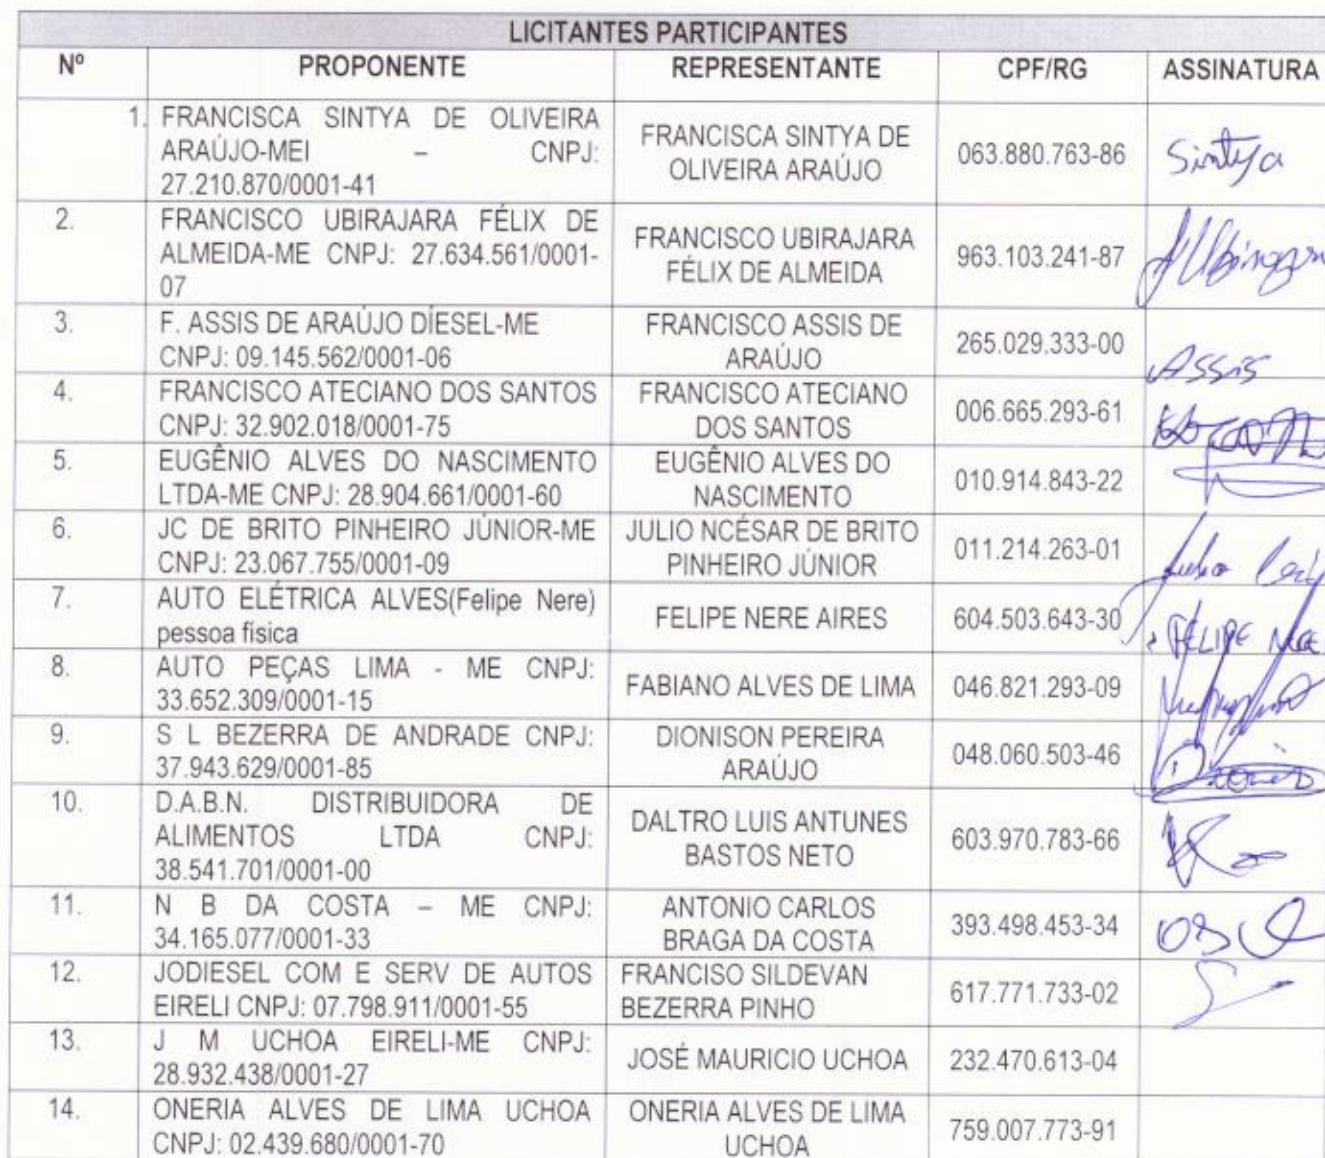 LICITANTES PARTICIPANTES
Nº PROPONENTE REPRESENTANTE CPF/RG ASSINATURA
1. FRANCISCA SINTYA DE OLIVEIRA
ARAÚJO-MEI – CNPJ:
27.210.870/0001-41
FRANCISCA SINTYA DE
OLIVEIRA ARAÚJO
063.880.763-86
Sintya
2. FRANCISCO UBIRAJARA FÉLIX DE
ALMEIDA-ME CNPJ: 27.634.561/0001-
07
FRANCISCO UBIRAJARA
FÉLIX DE ALMEIDA
963.103.241-87
3. F. ASSIS DE ARAÚJO DÍESEL-ME
CNPJ: 09.145.562/0001-06
FRANCISCO ASSIS DE
ARAÚJO
265.029.333-00
Assis
4. FRANCISCO ATECIANO DOS SANTOS
CNPJ: 32.902.018/0001-75
FRANCISCO ATECIANO
DOS SANTOS
006.665.293-61
5. EUGÊNIO ALVES DO NASCIMENTO
LTDA-ME CNPJ: 28.904.661/0001-60
EUGÊNIO ALVES DO
NASCIMENTO
010.914.843-22
6. JC DE BRITO PINHEIRO JÚNIOR-ME
CNPJ: 23.067.755/0001-09
JULIO NCÉSAR DE BRITO
PINHEIRO JÚNIOR
011.214.263-01
7. AUTO ELÉTRICA ALVES(Felipe Nere)
pessoa física
FELIPE NERE AIRES
604.503.643-30
FELIPE
8. AUTO PEÇAS LIMA - ME CNPJ:
33.652.309/0001-15
FABIANO ALVES DE LIMA
046.821.293-09
9. S L BEZERRA DE ANDRADE CNPJ:
37.943.629/0001-85
DIONISON PEREIRA
ARAÚJO
048.060.503-46
10. D.A.B.N. DISTRIBUIDORA DE
ALIMENTOS LTDA CNPJ:
38.541.701/0001-00
DALTRO LUIS ANTUNES
BASTOS NETO
603.970.783-66
11. N B DA COSTA – ME CNPJ:
34.165.077/0001-33
ANTONIO CARLOS
BRAGA DA COSTA
393.498.453-34
12. JODIESEL COM E SERV DE AUTOS
EIRELI CNPJ: 07.798.911/0001-55
FRANCISO SILDEVAN
BEZERRA PINHO
617.771.733-02
13. J M UCHOA EIRELI-ME CNPJ:
28.932.438/0001-27
JOSÉ MAURICIO UCHOA
232.470.613-04
14. ONERIA ALVES DE LIMA UCHOA
CNPJ: 02.439.680/0001-70
ONERIA ALVES DE LIMA
UCHOA
759.007.773-91